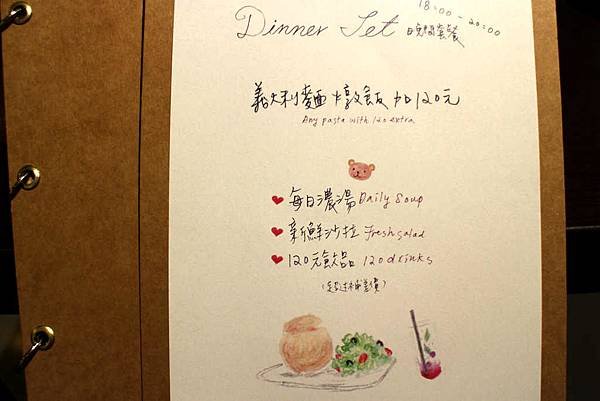 18:00-20:00
Dinner Set 晚間套餐
義大利麵燉飯加120元
Any pasta with 120 extra
每日濃湯 Daily Soup
新鮮沙拉 Fresh salad
120元飲品 120 drinks
(超過補差價)